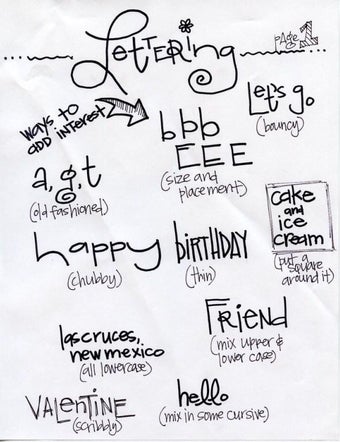 Lettering
Page 1
ways to
add interest
Let's go
(bouncy)
bbb
EEE
(size and
placement)
a, g, t
(old fashioned)
cake
and
ice
cream
(put a
square
around it)
happy
(chubby)
BIRTHDAY
(thin)
Friend
(mix upper &
lower case)
las cruces,
new mexico
(all lowercase)
VALENTINE
(scribbly)
hello
(mix in some cursive)